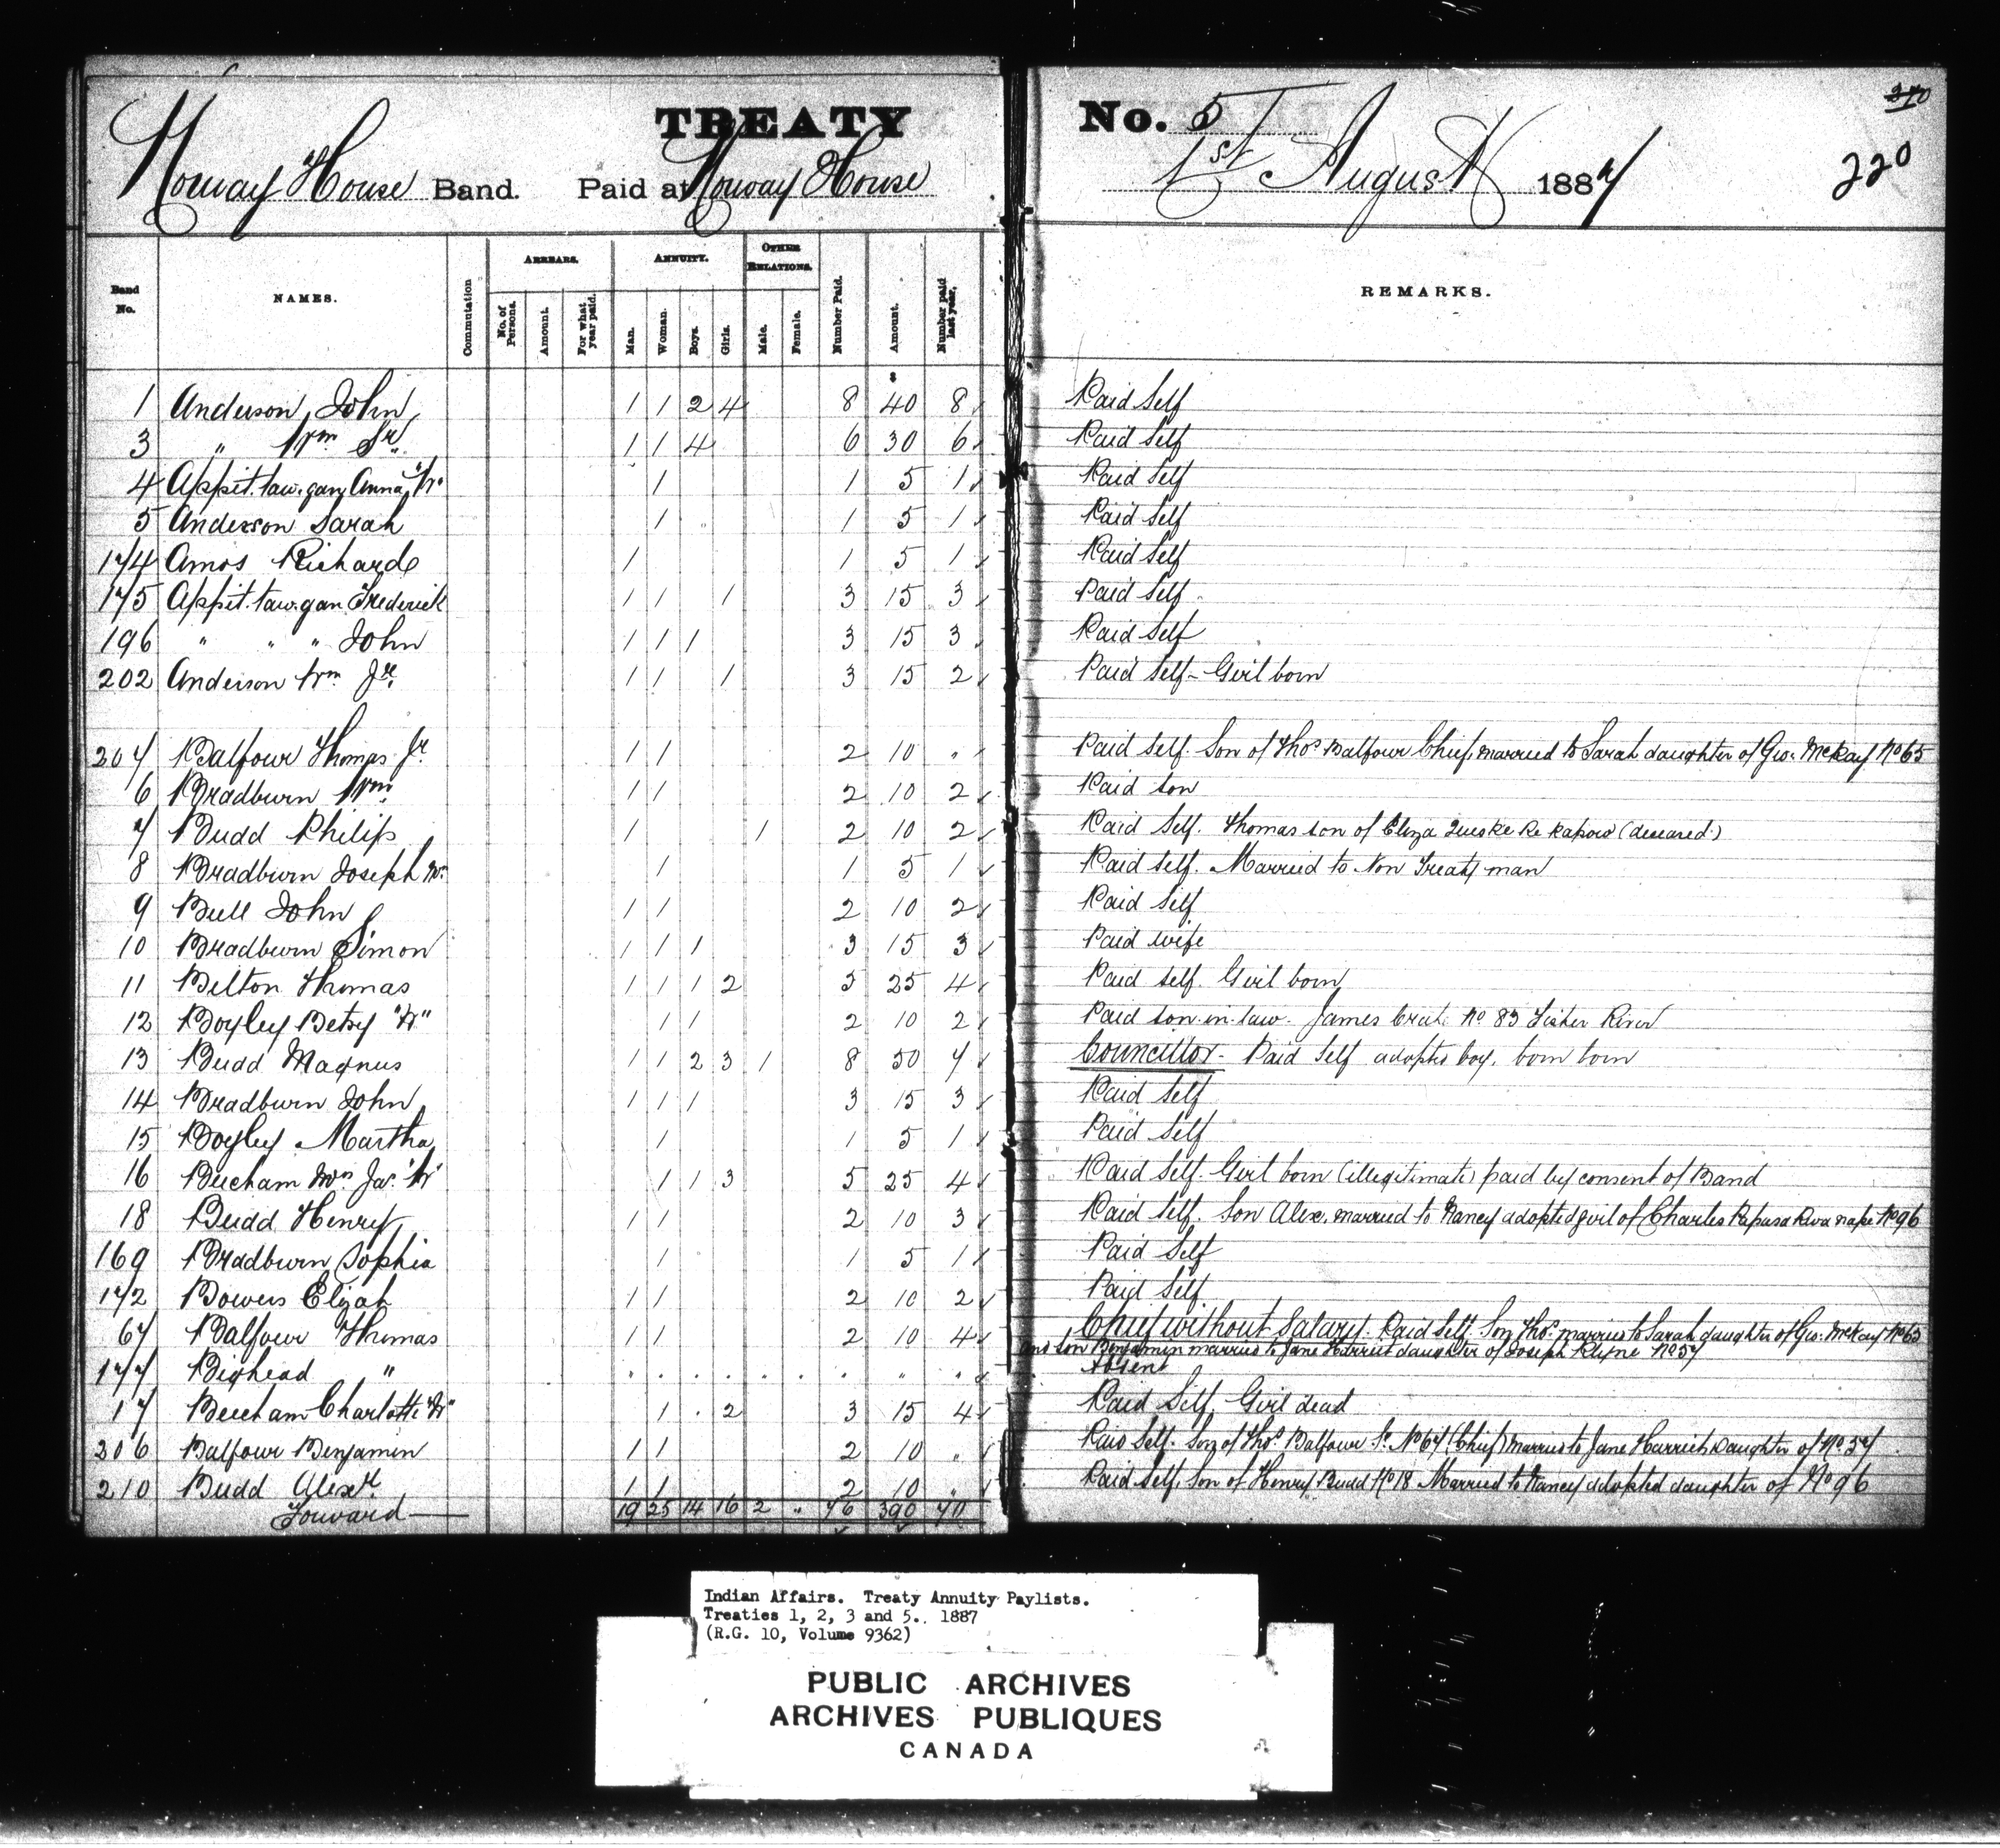 TREATY No. 5
370
220
Norway House Band. Paid at Norway House 1st August 1887
Band No. NAMES. Commutation ARREARS. No. of Persons. Amount. For what year paid. ANNUITY. Man. Woman. Boys. Girls. OTHER RELATIONS. Male. Female. Number Paid. Amount. Number paid last year. REMARKS.
$
1 Anderson John 1 1 2 4 8 40 8 Paid Self
3 " Wm Sr. 1 1 4 6 30 6 Paid Self
4 Appit.taw.gan Anna "W" 1 1 5 1 Paid Self
5 Anderson Sarah 1 1 5 1 Paid Self
174 Amos Richard 1 1 5 1 Paid Self
175 Appit.taw.gan Frederick 1 1 1 3 15 3 Paid Self
196 " " " John 1 1 1 3 15 3 Paid Self
202 Anderson Wm Jr. 1 1 1 3 15 2 Paid Self - Girl born
207 Balfour Thomas Jr. 1 1 2 10 " Paid Self. Son of Thos Balfour Chief, married to Sarah daughter of Geo. McKay No 65
6 Bradburn Wm 1 1 2 10 2 Paid son
7 Budd Philip 1 1 2 10 2 Paid Self. Thomas son of Eliza (deceased)
8 Bradburn Joseph W. 1 1 5 1 Paid self. Married to Non Treaty man
9 Bull John 1 1 2 10 2 Paid Self
10 Bradburn Simon 1 1 1 3 15 3 Paid wife
11 Belton Thomas 1 1 1 2 5 25 4 Paid self. Girl born
12 Boyley Betsy "W" 1 1 2 10 2 Paid son-in-law. James No 83 Fisher River
13 Budd Magnus 1 1 2 3 1 8 50 7 Councillor - Paid Self adopts boy, born
14 Bradburn John 1 1 1 3 15 3 Paid Self
15 Boyley Martha 1 1 5 1 Paid Self
16 Beecham Mrs Jas. "W" 1 1 3 5 25 4 Paid Self. Girl born (illegitimate) paid by consent of Band
18 Budd Henry 1 1 2 10 3 Paid Self. Son Alex. married to Nancy adopted girl of Charles No 96
169 Bradburn Sophia 1 1 5 1 Paid Self
172 Bowers Elijah 1 1 2 10 2 Paid Self
67 Balfour Thomas 1 1 2 10 4 Chief without Salary. Paid Self. Son Thos. married to Sarah daughter of Geo. McKay No 65
and son Benjamin married to Jane Harriet daughter of Joseph Klyne No 57
177 Bighead " Absent
17 Beecham Charlotte "W" 1 2 3 15 4 Paid Self. Girl dead
206 Balfour Benjamin 1 1 2 10 " Paid Self. Son of Thos Balfour Sr. No 67 (Chief) Married to Jane Harriet Daughter of No 57
210 Budd Alexr. 1 1 2 10 " Paid Self. Son of Henry Budd No 18 Married to Nancy adopted daughter of No 96
Forward 19 25 14 16 2 " 76 390 70
Indian Affairs. Treaty Annuity Paylists.
Treaties 1, 2, 3 and 5.. 1887
(R.G. 10, Volume 9362)
PUBLIC ARCHIVES
ARCHIVES PUBLIQUES
CANADA